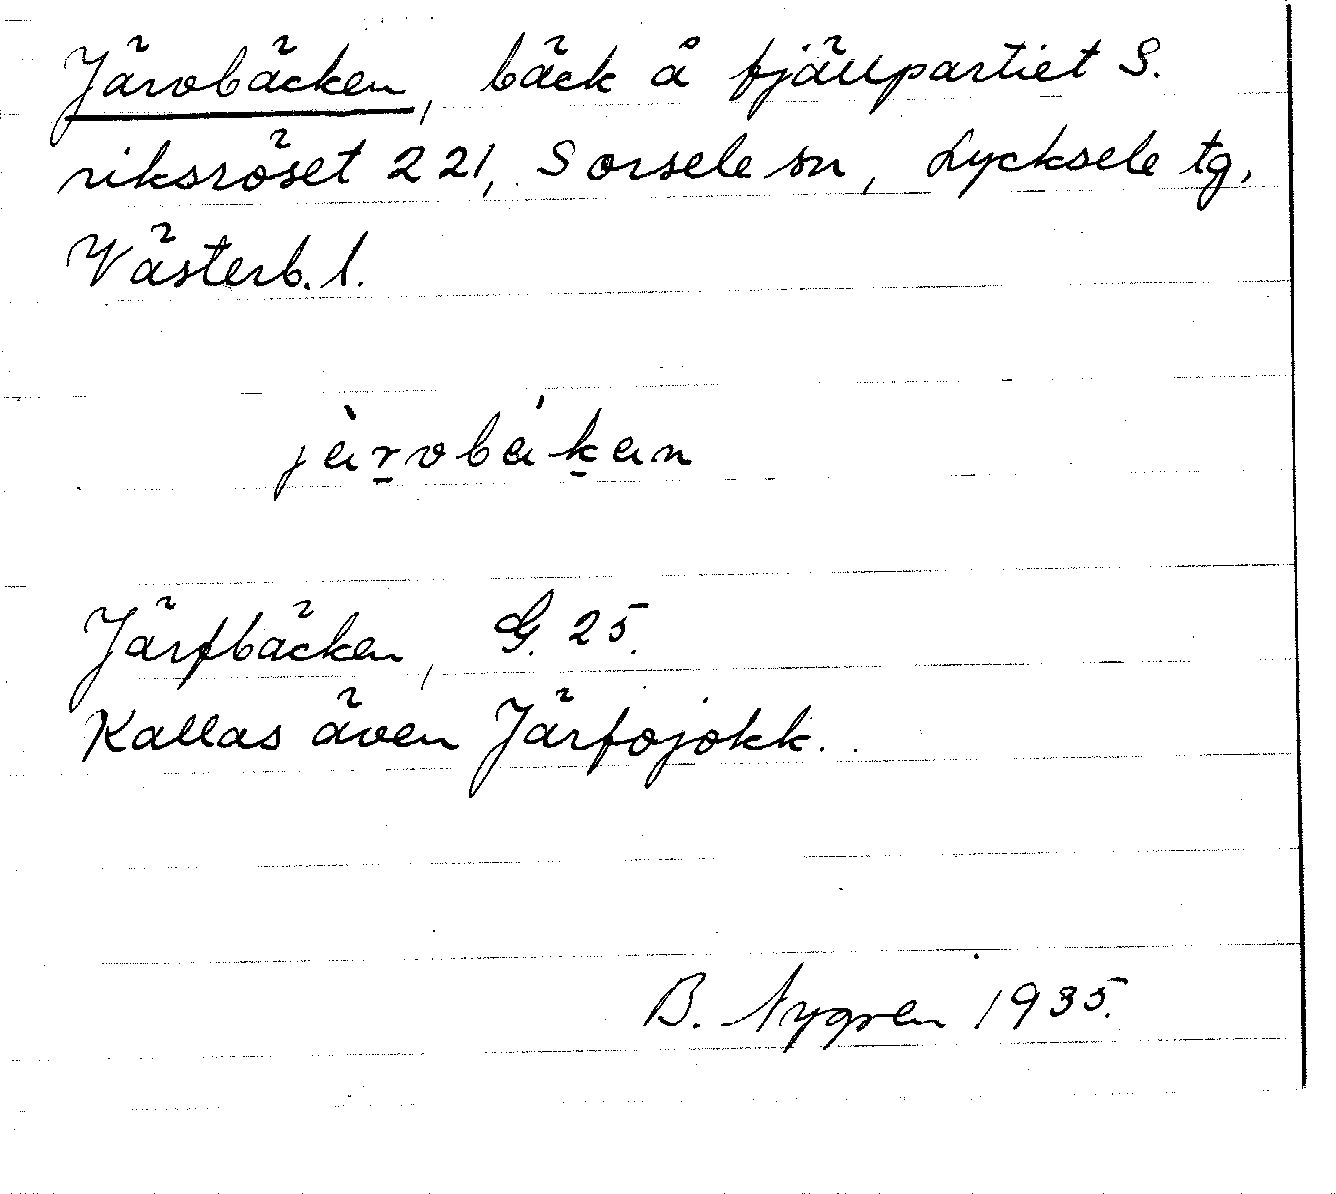 Järvbäcken, bäck å fjällpartiet S.
riksröset 221, Sorsele sn, Lycksele tg,
Västerb. l.
jàrvbákan
Järfbäcken, G. 25.
Kallas även Järfojokk.
B. Nygren 1935.